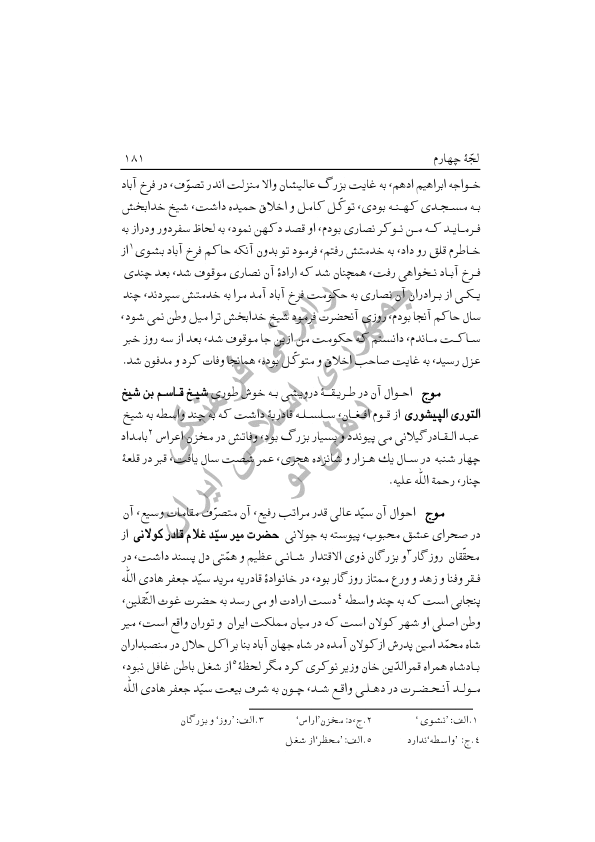 لجّهٔ چهارم ۱۸۱
خـواجه ابراهیم ادهم، به غایت بزرگ عالیشان والا منزلت اندر تصوّف، در فرخ آباد
بـه مسـجـدی کهـنـه بودی، توکّل کامل و اخلاق حمیده داشت، شیخ خدابخش
فـرمـایـد کـه مـن نـوکر نصاری بودم، او قصد دکهن نمود، به لحاظ سفردور ودراز به
خـاطرم قلق رو داد، به خدمتش رفتم، فرمود تو بدون آنکه حاکم فرخ آباد بشوی۱از
فـرخ آبـاد نـخواهی رفت، همچنان شد که ارادهٔ آن نصاری موقوف شد، بعد چندی
یـکـی از بـرادران آن نصاری به حکومت فرخ آباد آمد مرا به خدمتش سپردند، چند
سال حاکم آنجا بودم، روزی آنحضرت فرمود شیخ خدابخش ترا میل وطن نمی شود،
سـاکـت مـاندم، دانستم که حکومت من ازین جا موقوف شد، بعد از سه روز خبر
عزل رسید، به غایت صاحب اخلاق و متوکّل بوده، همانجا وفات کرد و مدفون شد.
موج احـوال آن در طـریـقـهٔ درویشی بـه خوش طوری شیـخ قـاسـم بن شیخ
التوری الپیشوری از قـوم افغـان، سـلسلـه قادریهٔ داشت که به چند واسطه به شیخ
عبـد الـقـادرگیلانی می پیوندد و بسیار بزرگ بود، وفاتش در مخزن اعراس۲بامداد
چهار شنبه در سـال یك هـزار و شانزده هجری، عمر شصت سال یافت، قبر در قلعهٔ
چنار، رحمة الله علیه.
موج احوال آن سیّد عالی قدر مراتب رفیع، آن متصرّف مقامات وسیع، آن
در صحرای عشق محبوب، پیوسته به جولانی حضرت میر سیّد غلام قادر کولانی از
محقّقان روزگار۳و بزرگان ذوی الاقتدار شـانـی عظیم و همّتی دل پسند داشت، در
فـقر وفنا و زهد و ورع ممتاز روزگار بود، در خانوادهٔ قادریه مرید سیّد جعفر هادی الله
پنجابی است که به چند واسطه۴دست ارادت او می رسد به حضرت غوث الثّقلین،
وطن اصلی او شهر کولان است که در میان مملکت ایران و توران واقع است، میر
شاه محمّد امین پدرش از کولان آمده در شاه جهان آباد بنا بر اکل حلال در منصبداران
بـادشاه همراه قمرالدّین خان وزیر نوکری کرد مگر لحظهٔ۵از شغل باطن غافل نبود،
مـولـد آنـحـضـرت در دهـلـی واقـع شـد، چـون به شرف بیعت سیّد جعفر هادی الله
۱.الف: 'نشوی' ۲.ج،د: مخزن'اراس' ۳.الف: 'روز' و بزرگان
۴.ج: 'واسطه'ندارد ۵.الف: 'محظر'از شغل